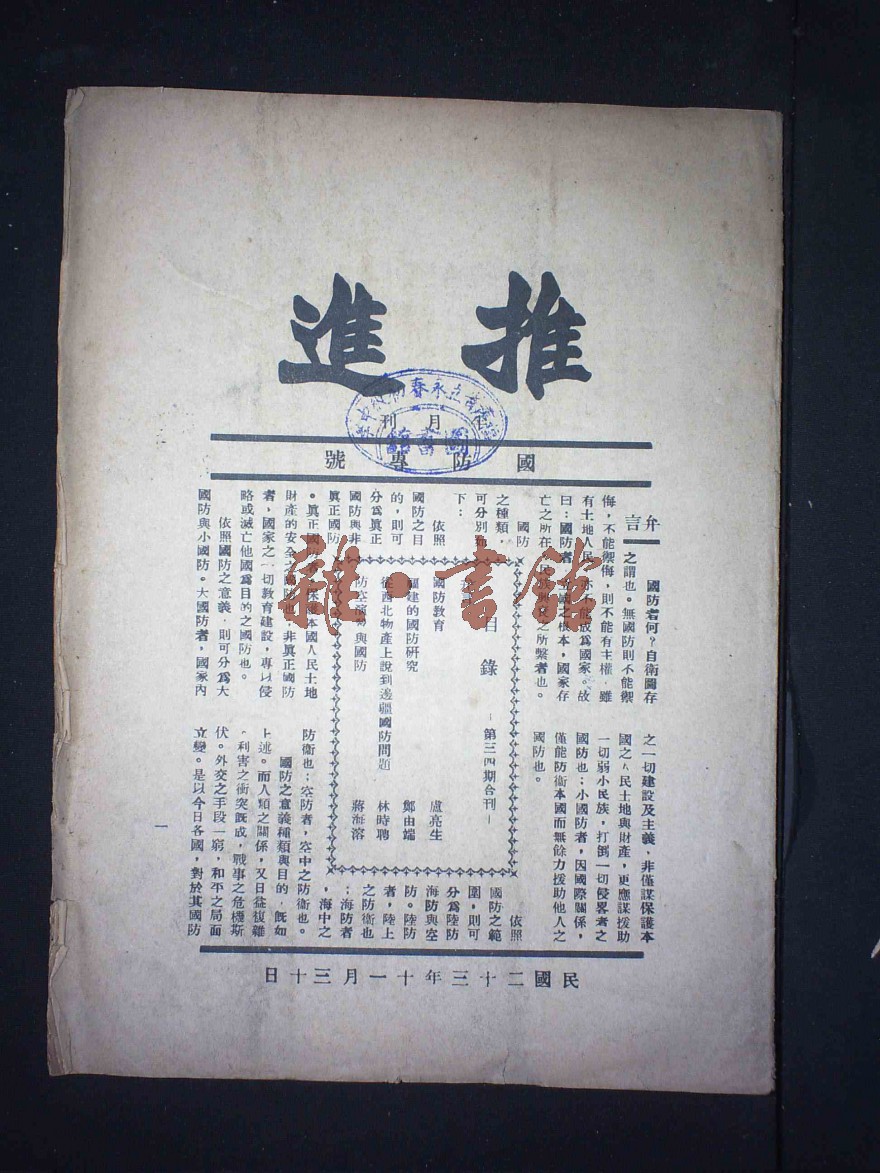 推進
半月刊
國防專號
弁言
國防者何？自衛圖存
之謂也。無國防則不能禦
侮，不能禦侮，則不能有主權，雖
有土地人民，亦不能成爲國家。故
曰：國防者，
亡之所在，
國防
之種類，
可分別如
下：
依照
國防之目
的，則可
分爲眞正
國防與非
眞正國防
。眞正國防者，保護本國人民土地
財產的安全之國防也。非眞正國防
者，國家之一切教育建設，專以侵
略或滅亡他國爲目的之國防也。
依照國防之意義，則可分爲大
國防與小國防。大國防者，國家內
之一切建設及主義，非僅謀保護本
國之人民土地與財產，更應謀援助
一切弱小民族，打倒一切侵畧者之
國防也；小國防者，因國際關係，
僅能防衛本國而無餘力援助他人之
國防也。
依照
國防之範
圍，則可
分爲陸防
海防與空
防。陸防
者，陸上
之防衛也
；海防者
，海中之
防衛也；空防者，空中之防衛也。
國防之意義種類與目的，既如
上述。而人類之關係，又日益復雜
，利害之衝突既成，戰事之危機斯
伏。外交之手段一窮，和平之局面
立變。是以今日各國，對於其國防
目錄 －第三四期合刊－
國防教育 盧亮生
福建的國防研究 鄭由端
從西北物產上說到邊疆國防問題 林時聘
防空演習與國防 蔣海溶
一
民國二十三年十一月三十日
福建省立永春初級中學
圖書館
雜·書館